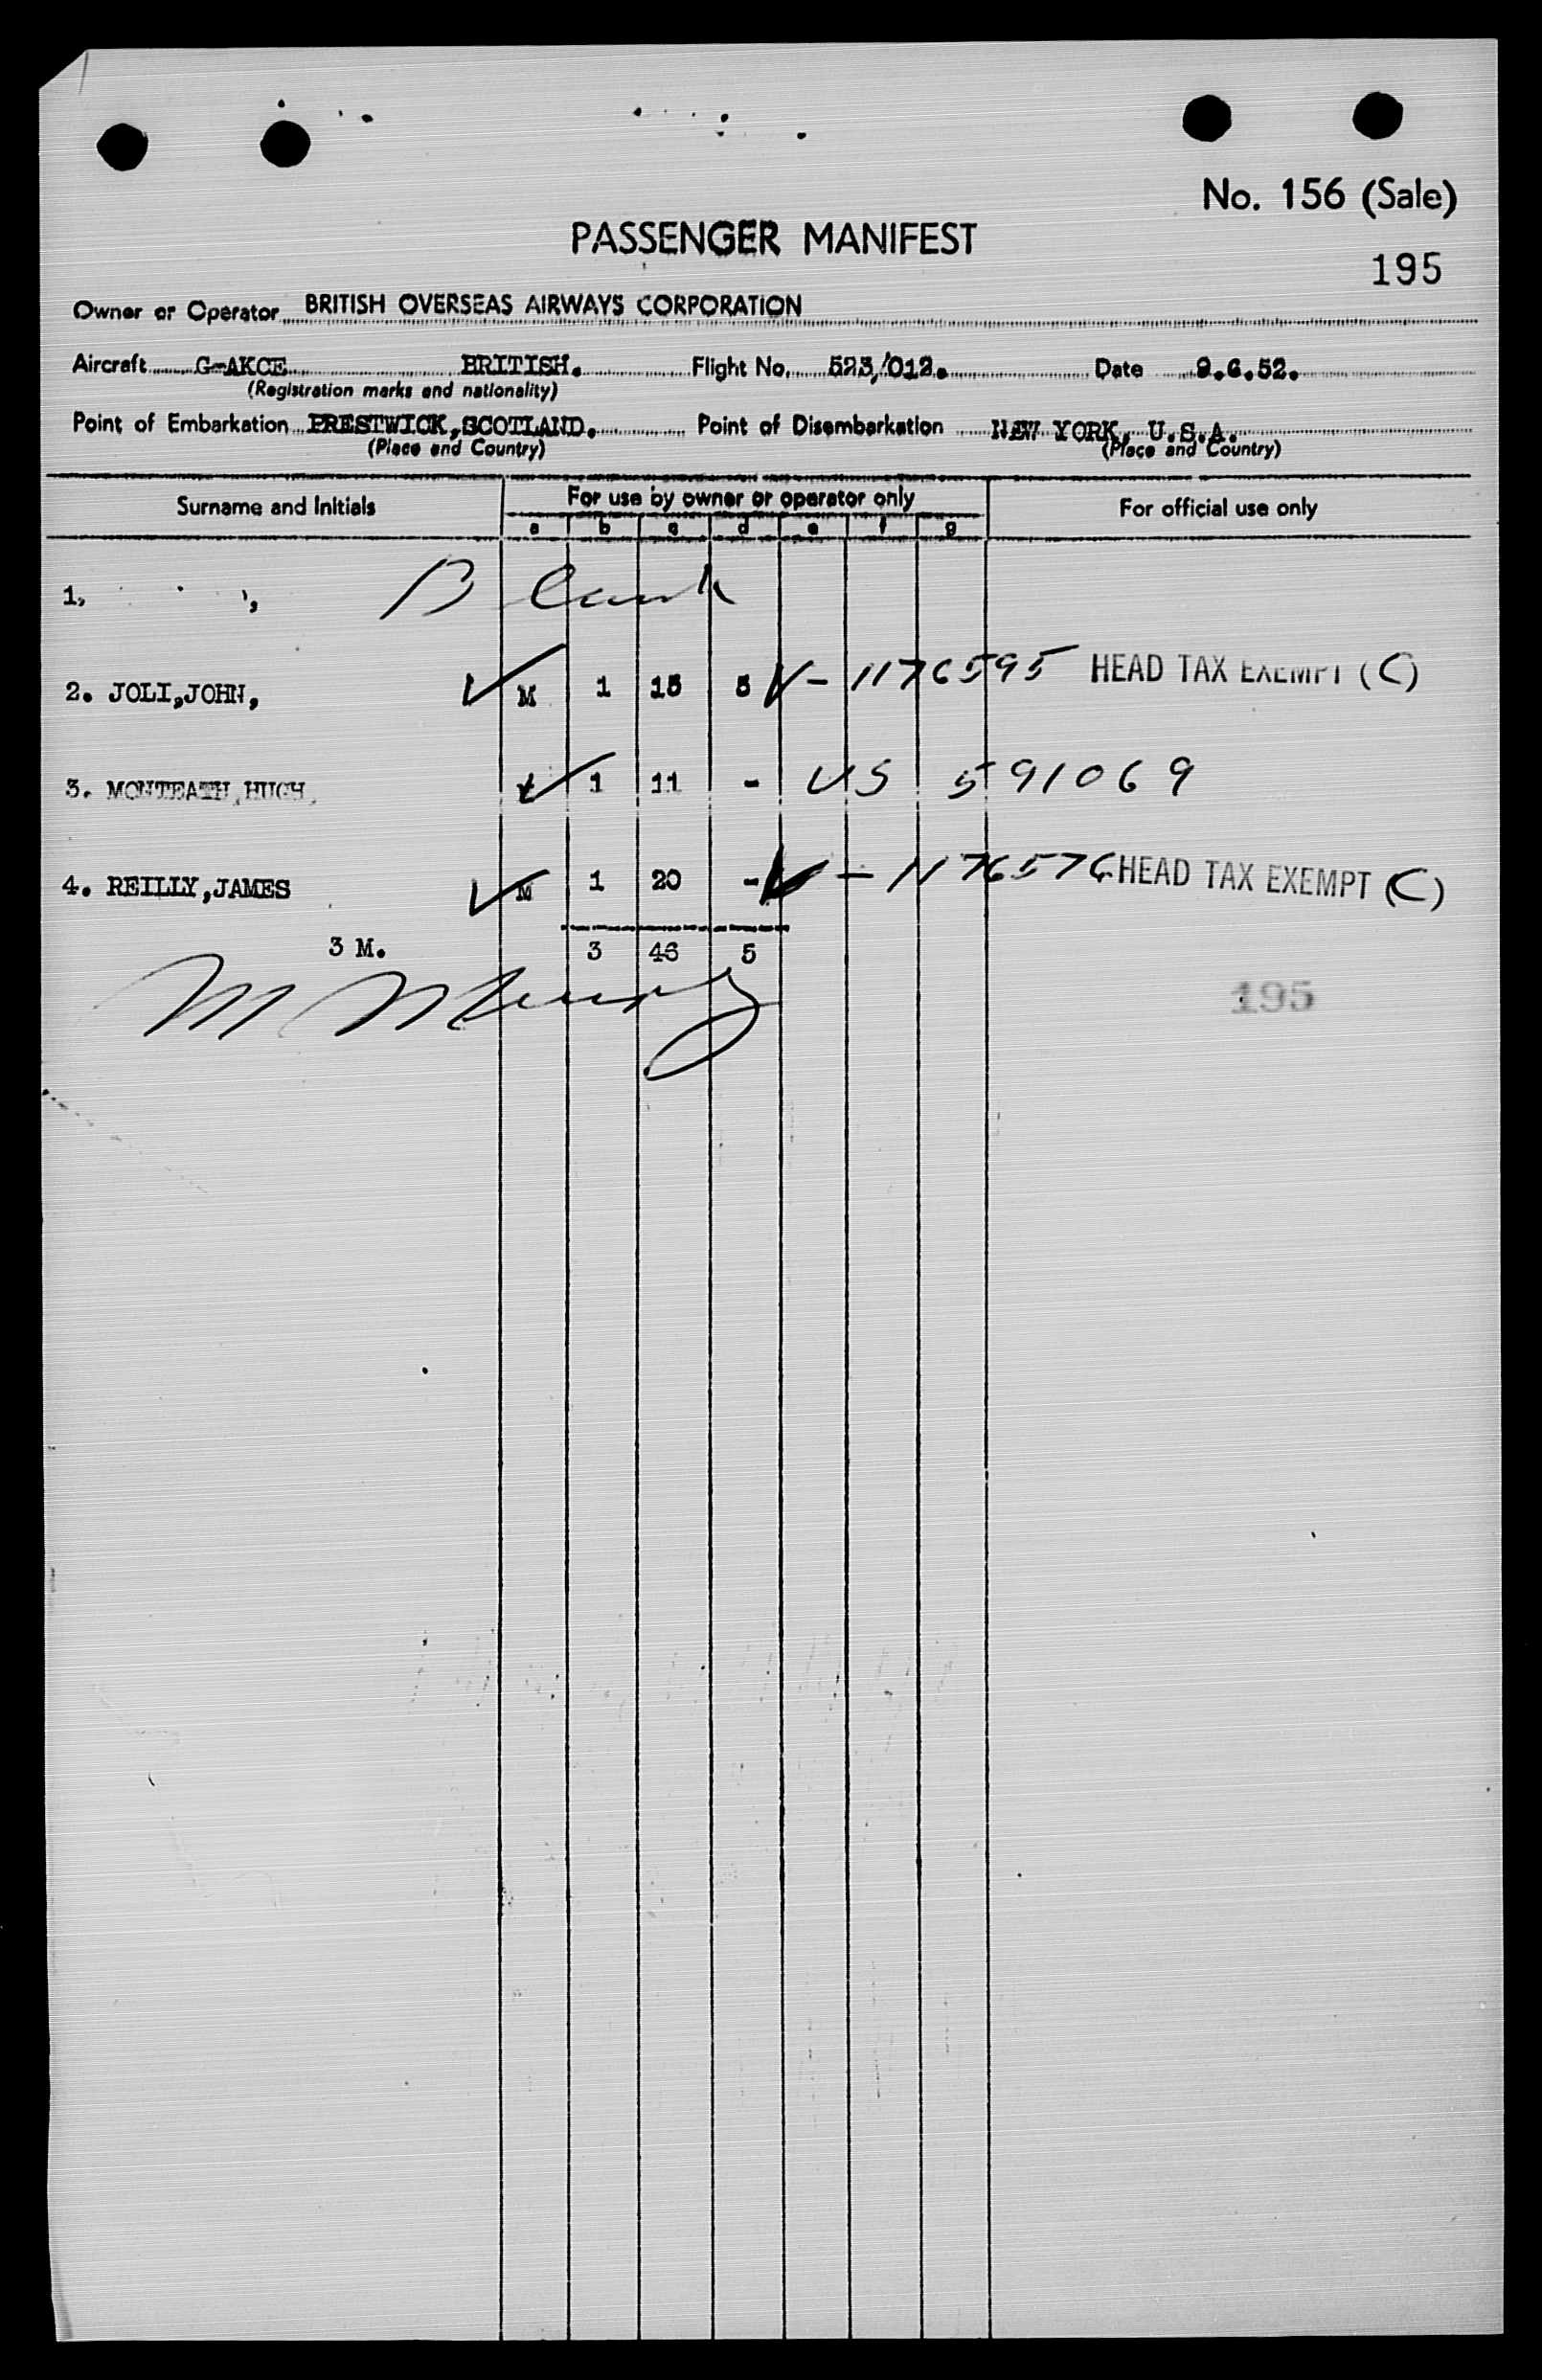 No. 156 (Sale)
PASSENGER MANIFEST
195
Owner or Operator BRITISH OVERSEAS AIRWAYS CORPORATION
Aircraft G-AKCE BRITISH. Flight No. 523/012. Date 9.6.52.
(Registration marks and nationality)
Point of Embarkation PRESTWICK,SCOTLAND. Point of Disembarkation NEW YORK, U.S.A.
(Place and Country) (Place and Country)
Surname and Initials For use by owner or operator only For official use only
a b c d e f g
1, , Blank
2. JOLI,JOHN, M 1 15 5 V - 1176595 HEAD TAX EXEMPT (C)
3. MONTEATH,HUGH, 1 11 - US 591069
4. REILLY,JAMES M 1 20 - V - 1176576 HEAD TAX EXEMPT (C)
3 M. 3 46 5
195